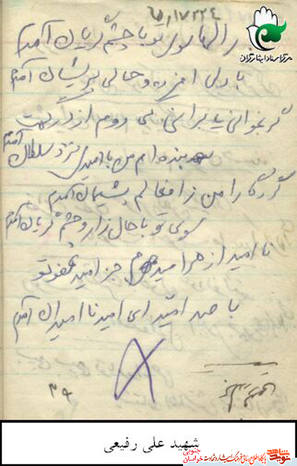 بار الها سوی تو با چشم گریان آمدم
با دل افسرده و حالی پریشان آمدم
گر بخوانی یا برانی نمی روم از درگهت
بنده ام من با امیدی نزد سلطان آمدم
کردگارا من ز افعالم پشیمان آمدم
سوی تو با حال زار و چشم گریان آمدم
نا امید از هر امیدم جز امید عفو تو
با صد امید ای امید نا امیدان آمدم
۳۹
شهید علی رفیعی